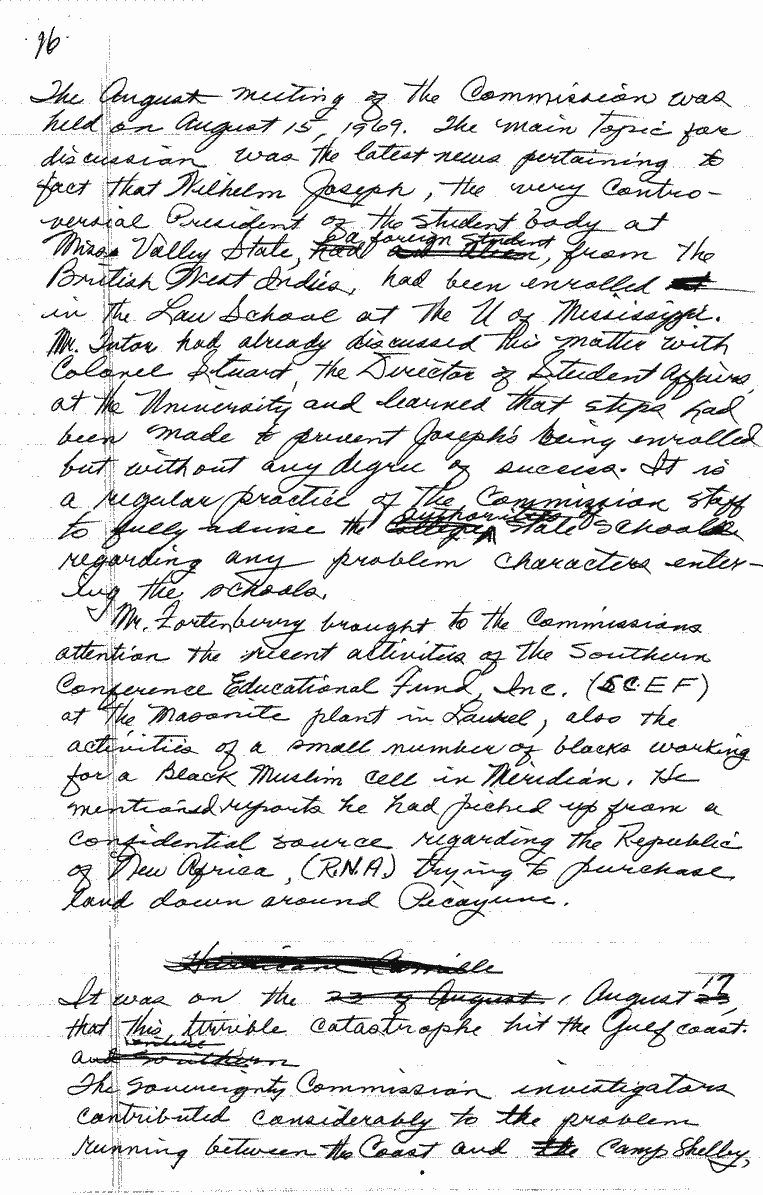 96
The August meeting of the Commission was
held on August 15, 1969. The main topic for
discussion was the latest news pertaining to
fact that Wilhelm Joseph, the very contro-
versial President of the student body at
Miss. Valley State, had a foreign student an alien, from the
British West Indies, had been enrolled at
in the Law School at the U of Mississippi.
Mr. Tutor had already discussed this matter with
Colonel Stuart, the Director of Student Affairs,
at the University and learned that steps had
been made to prevent Joseph's being enrolled
but without any degree of success. It is
a regular practice of the Commission staff
to fully advise the authorities of State schools
regarding any problem characters enter-
ing the schools.
Mr. Fortenberry brought to the Commissions
attention the recent activities of the Southern
Conference Educational Fund, Inc. (SCEF)
at the Masonite plant in Laurel, also the
activities of a small number of blacks working
for a Black Muslim cell in Meridian. He
mentioned reports he had picked up from a
confidential source regarding the Republic
of New Africa, (R.N.A.) trying to purchase
land down around Picayune.
Hurricane Camille
It was on the 23 of August, August 23 17,
that this terrible catastrophe hit the Gulf coast.
entire
and southern
The Sovereignty Commission investigators
contributed considerably to the problem
running between the Coast and the Camp Shelby,